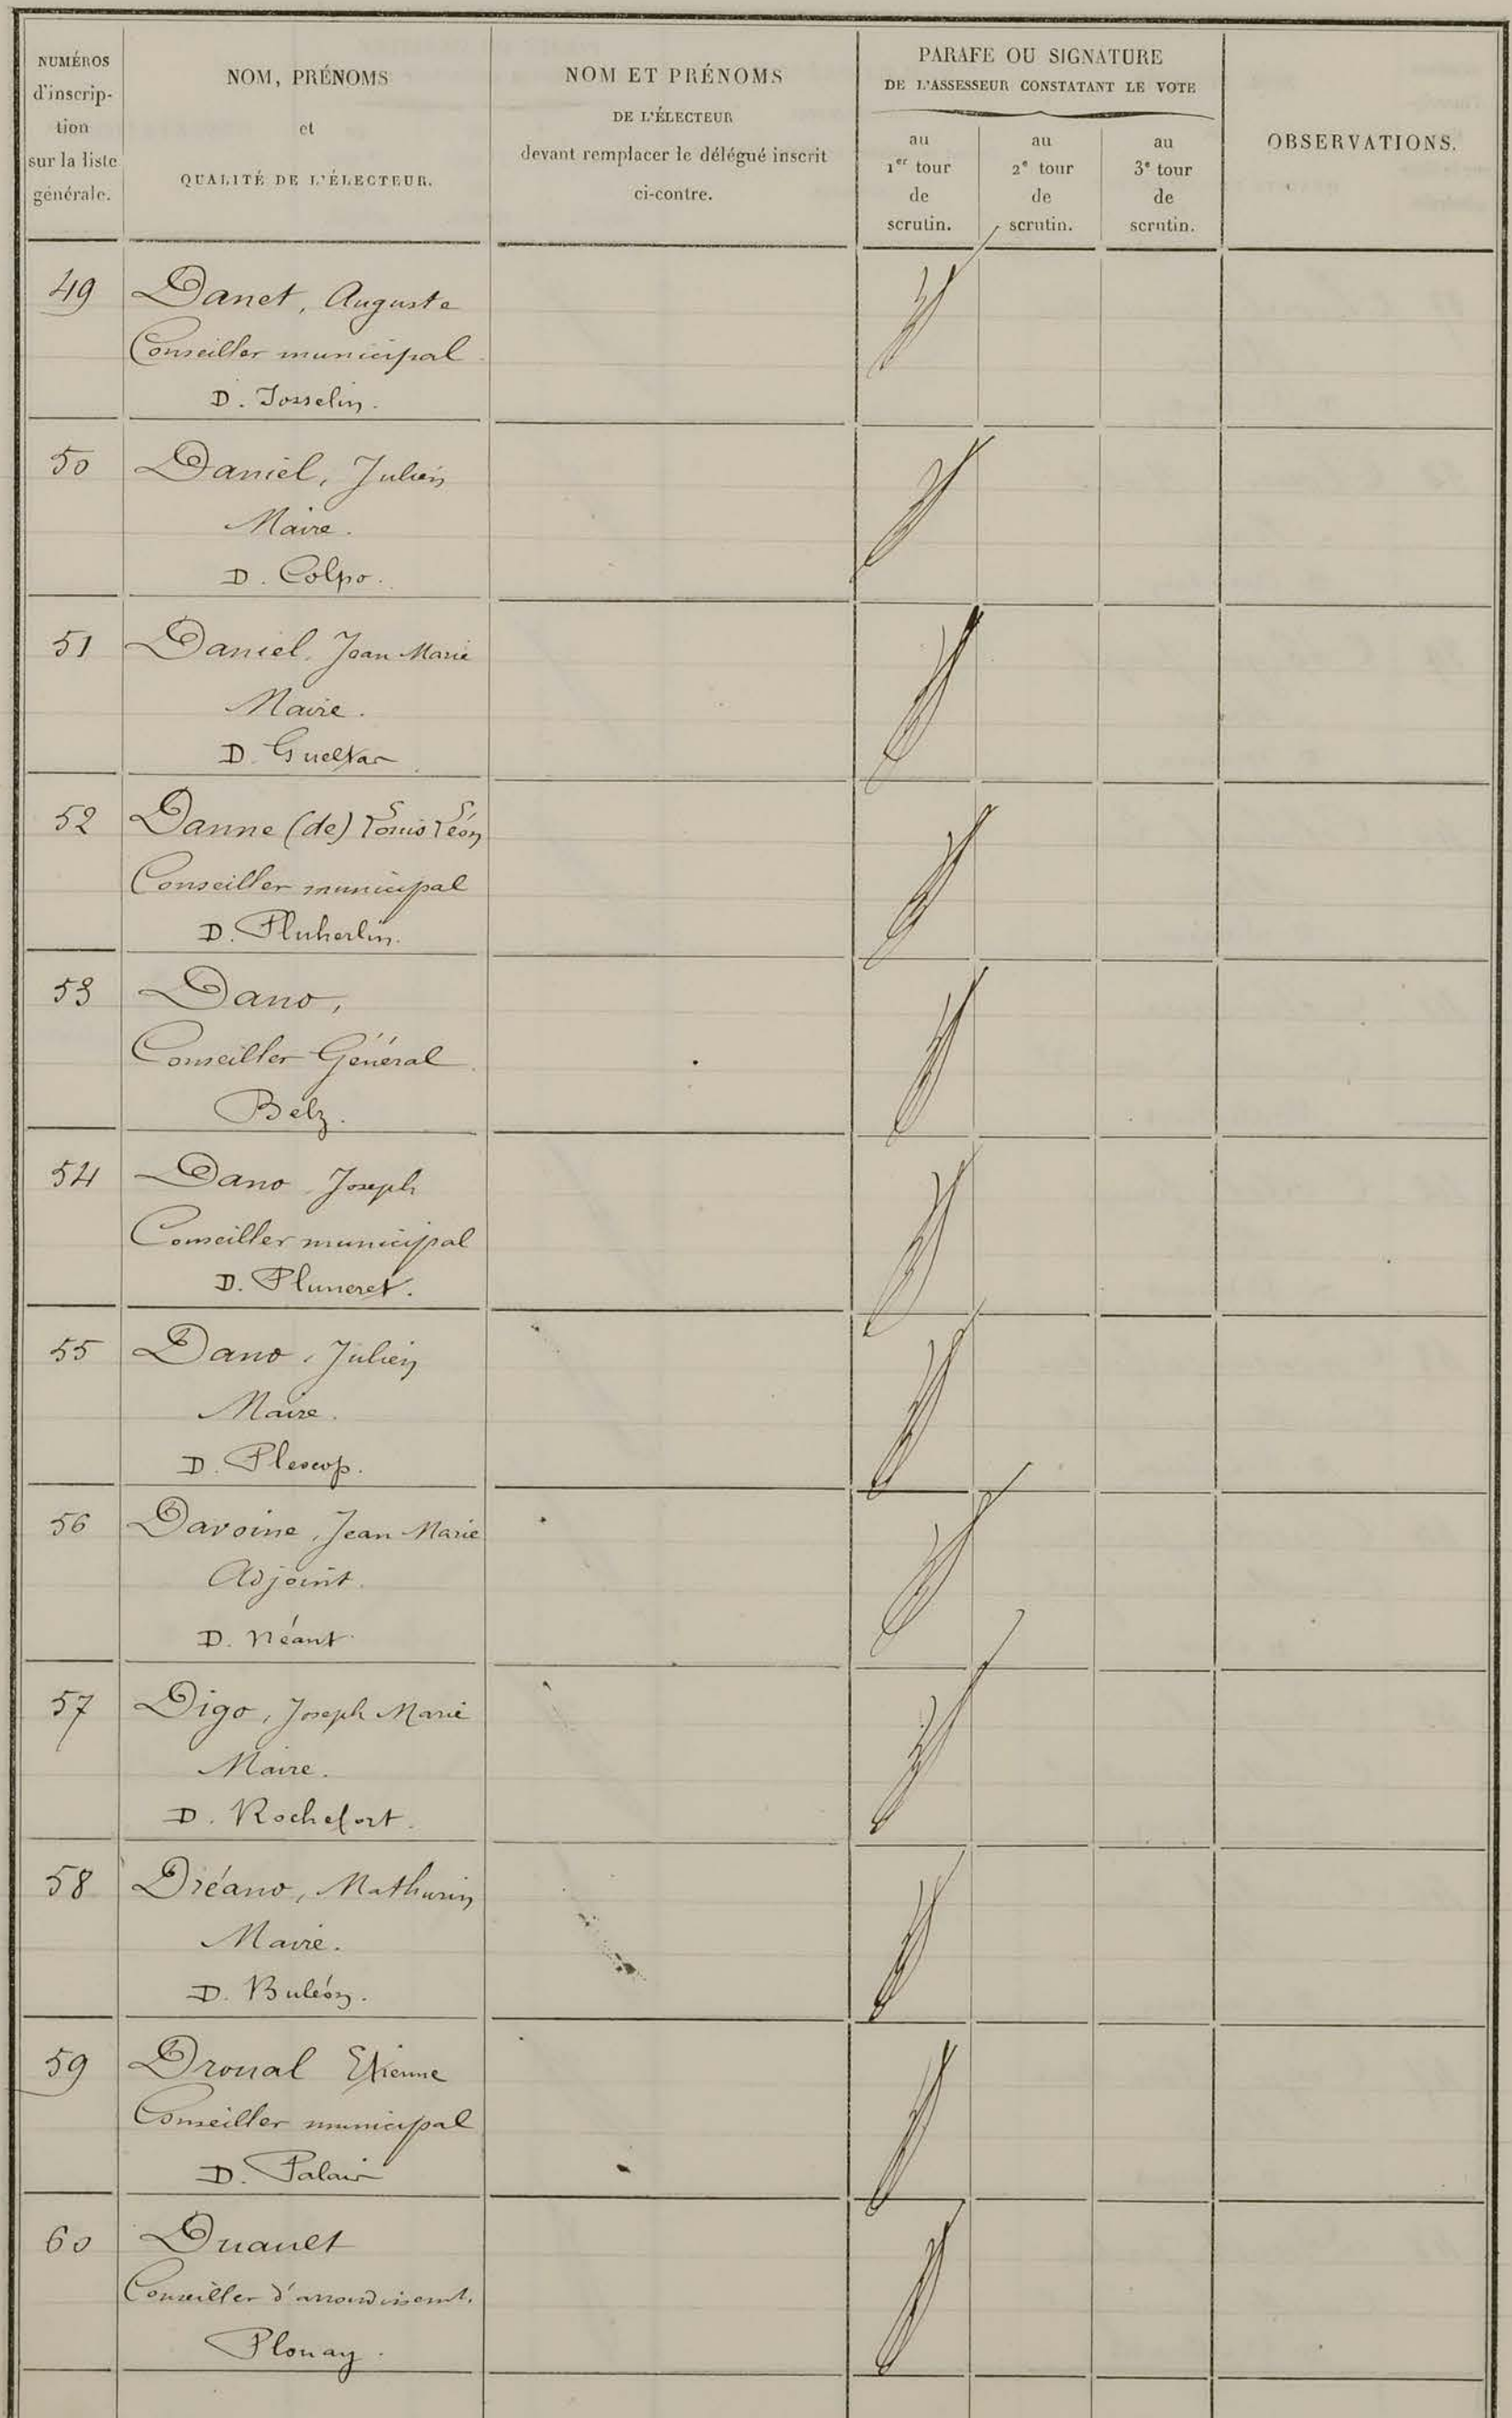 NUMÉROS
d'inscrip-
tion
sur la liste
générale.
NOM, PRÉNOMS
et
QUALITÉ DE L'ÉLECTEUR.
NOM ET PRÉNOMS
DE L'ÉLECTEUR
devant remplacer le délégué inscrit
ci-contre.
PARAFE OU SIGNATURE
DE L'ASSESSEUR CONSTATANT LE VOTE
au
1er tour
de
scrutin.
au
2e tour
de
scrutin.
au
3e tour
de
scrutin.
OBSERVATIONS.
49 Danet, Auguste
Conseiller municipal
D. Josselin.
50 Daniel, Julien
Maire.
D. Colpo.
51 Daniel, Jean Marie
Maire.
D. Gueltas
52 Danne (de) Louis Léon
Conseiller municipal
D. Pluherlin.
53 Dano,
Conseiller Général
Belz.
54 Dano Joseph
Conseiller municipal
D. Pluneret.
55 Dano, Julien
Maire.
D. Plescop.
56 Davoine, Jean Marie
Adjoint.
D. Néant
57 Digo, Joseph Marie
Maire.
D. Rochefort.
58 Dréano, Mathurin
Maire.
D. Buléon.
59 Droual Etienne
Conseiller municipal
D. Palais
60 Duauet
Conseiller d'arrondissemt.
Plouay.